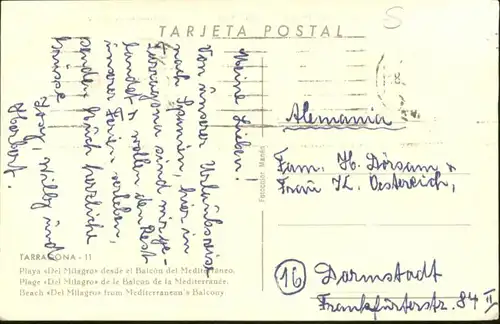 TARJETA POSTAL
Meine Lieben!
Von unserer Urlaubsreise
nach Spanien, hier in
Tarragona sind wir ge-
landet & wollen den Rest
unserer Ferien verleben,
senden Euch herzliche
Grüsse
Willy und
Herbert.
Alemania
Fam. H. Dörsam &
Frau K. Oestereich,
16 Darmstadt
Frankfurterstr. 84 II
Fotocolor
TARRAGONA - 11
Playa «Del Milagro» desde el Balcón del Mediterráneo.
Plage «Del Milagro» de le Balcon de la Mediterranée.
Beach «Del Milagro» from Mediterranean's Balcony